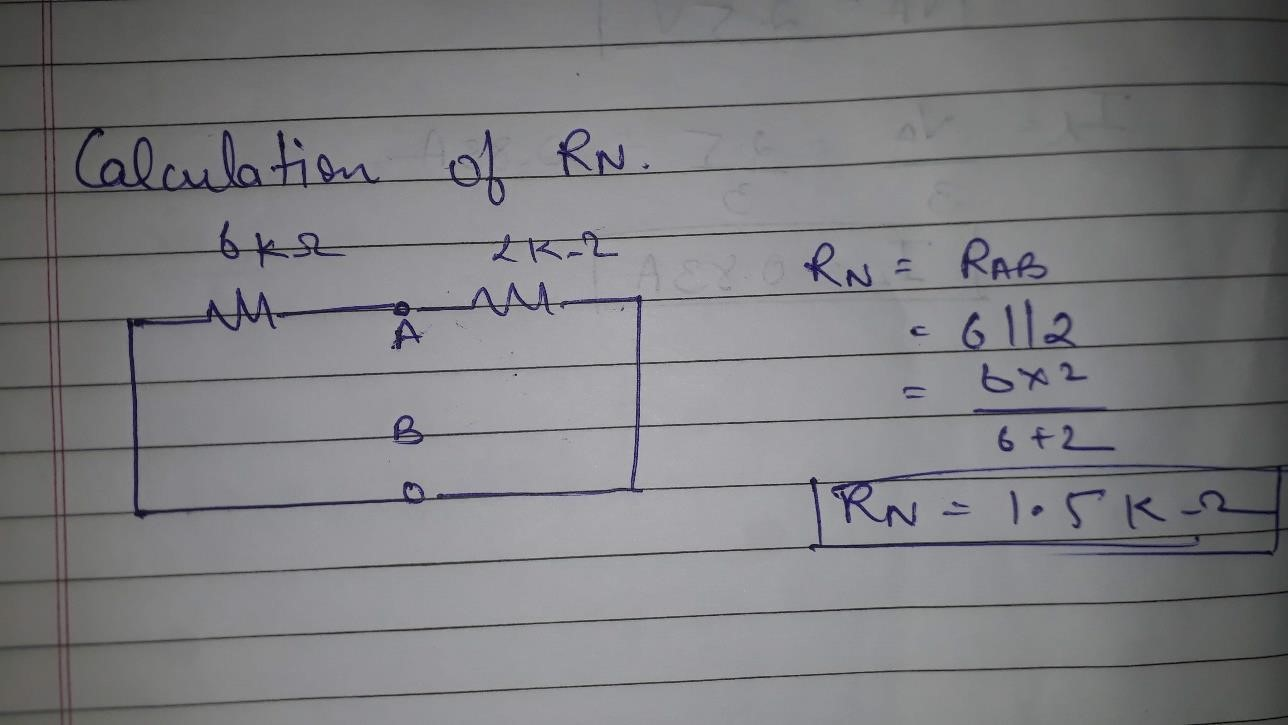 Calculation of RN.
6 KΩ 2K-Ω
A
B
RN = RAB
= 6 || 2
= 6×2
6+2
RN = 1.5 K-Ω